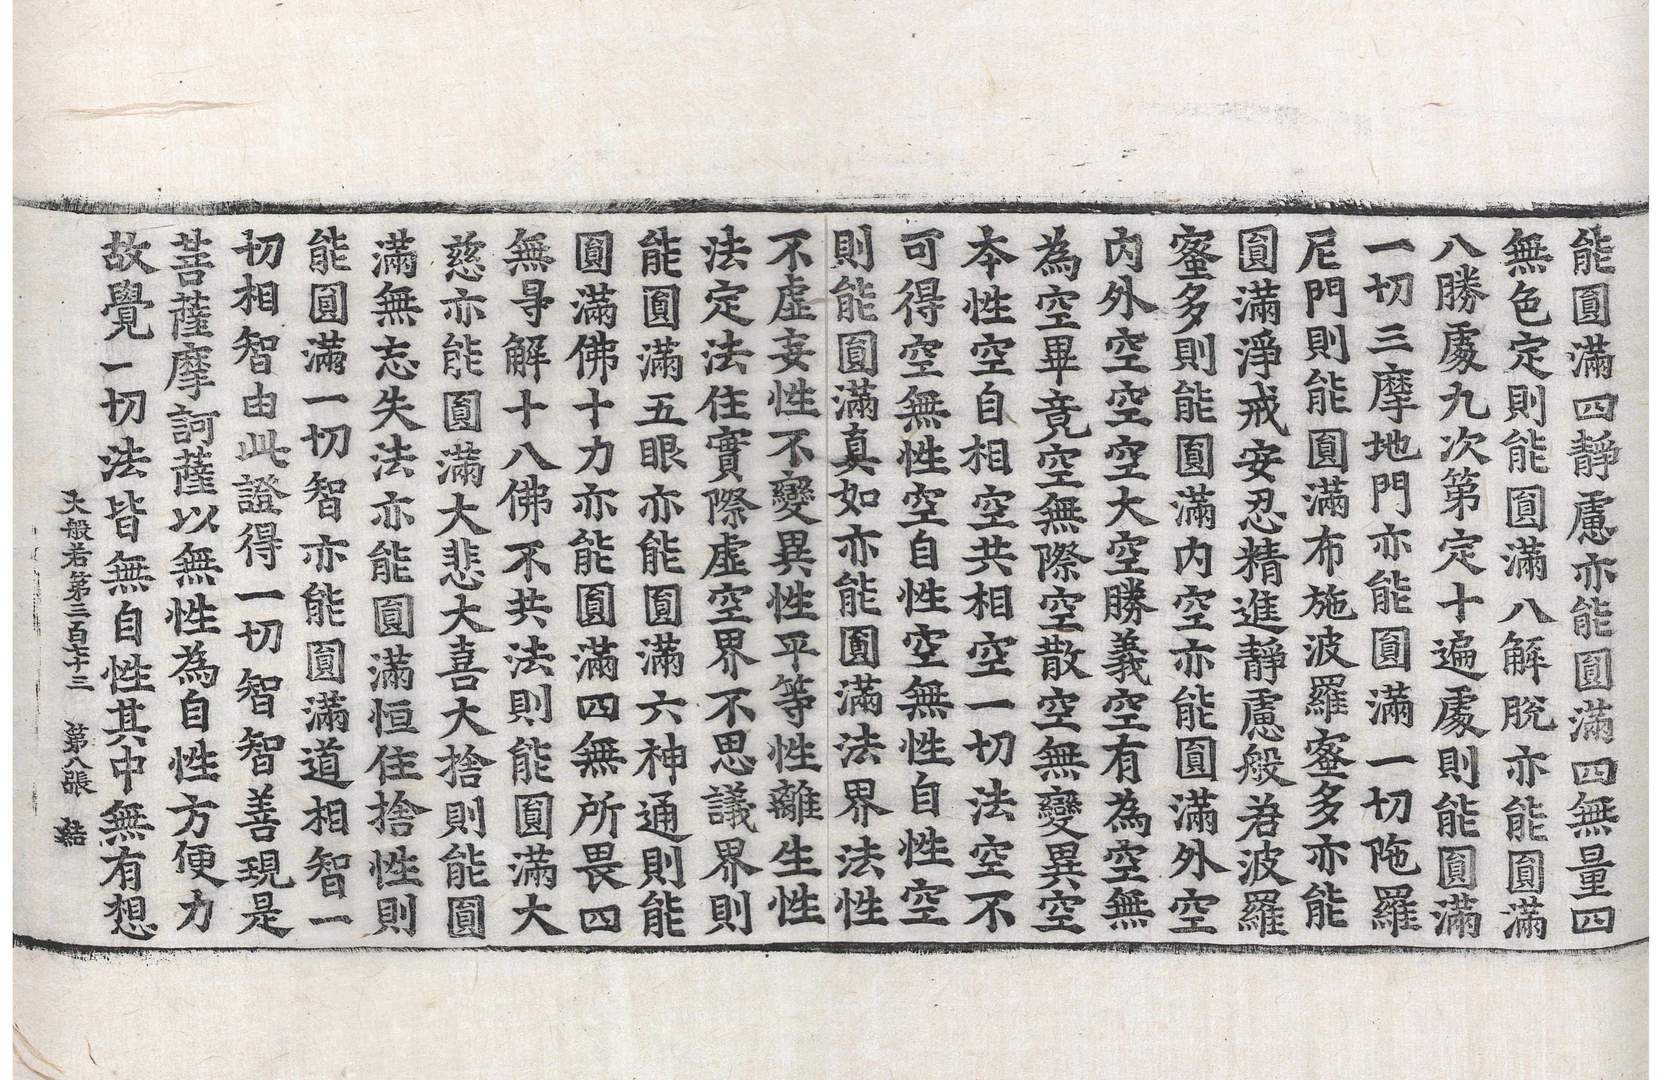 能圓滿四靜慮亦能圓滿四無量四
無色定則能圓滿八解脫亦能圓滿
八勝處九次第定十遍處則能圓滿
一切三摩地門亦能圓滿一切陁羅
尼門則能圓滿布施波羅蜜多亦能
圓滿淨戒安忍精進靜慮般若波羅
蜜多則能圓滿內空亦能圓滿外空
內外空空空大空勝義空有為空無
為空畢竟空無際空散空無變異空
本性空自相空共相空一切法空不
可得空無性空自性空無性自性空
則能圓滿真如亦能圓滿法界法性
不虛妄性不變異性平等性離生性
法定法住實際虛空界不思議界則
能圓滿五眼亦能圓滿六神通則能
圓滿佛十力亦能圓滿四無所畏四
無㝵解十八佛不共法則能圓滿大
慈亦能圓滿大悲大喜大捨則能圓
滿無忘失法亦能圓滿恒住捨性則
能圓滿一切智亦能圓滿道相智一
切相智由此證得一切智智善現是
菩薩摩訶薩以無性為自性方便力
故覺一切法皆無自性其中無有想
大般若第三百七十三 第八張 結